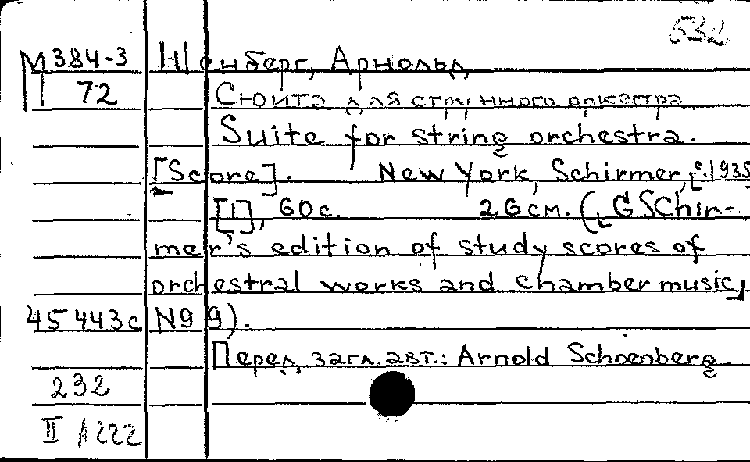 632
М384-3 Шенберг, Арнольд,
П 72 Сюита для струнного оркестра
Suite for string orchestra.
[Score]. New York, Schirmer, [c.1935
[1], 60с. 26см. ([G Schir-
mer's edition of study scores of
orchestral works and chamber music]
45 443c N9 9).
Перед. загл. авт.: Arnold Schoenberg
232
II 1222